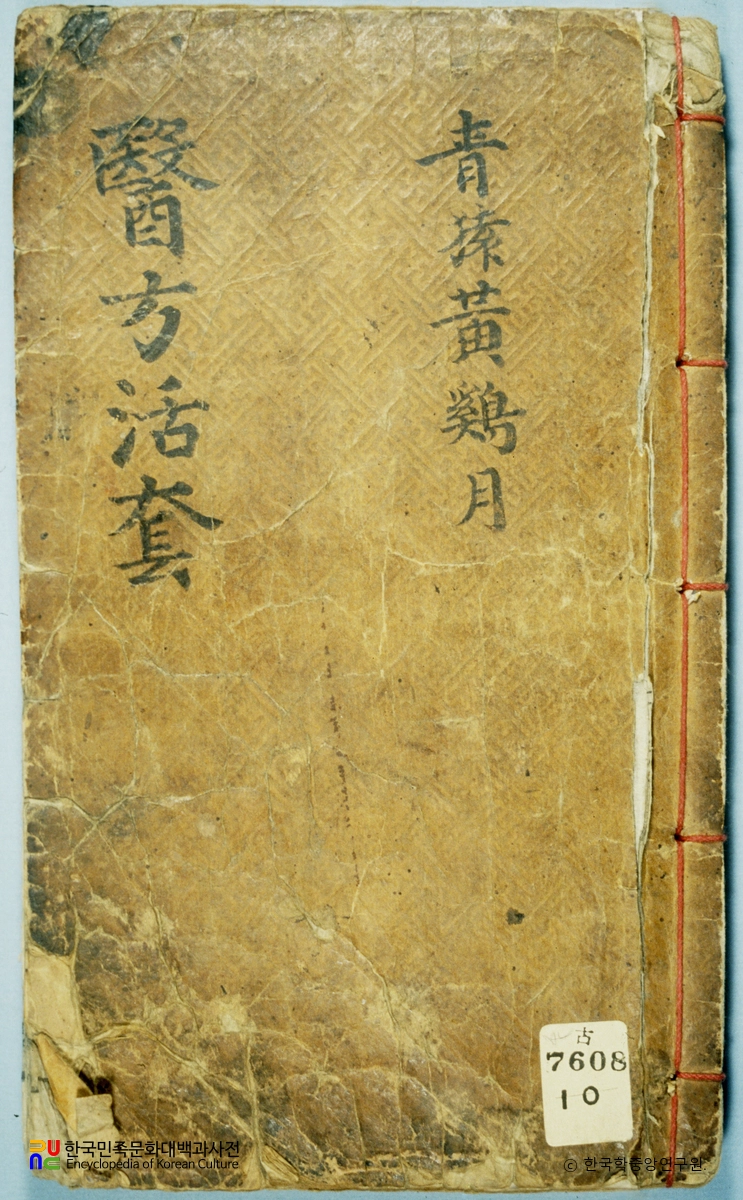 青猿黃鷄月
醫方活套
古
7608
10
한국민족문화대백과사전
Encyclopedia of Korean Culture
ⓒ 한국학중앙연구원